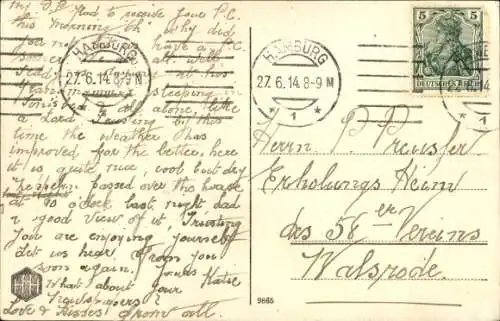 my D.P. Glad to receive your P.C.
this morning Oh why did
you not have a P.C.
HAMBURG
27.6.14.8-9N
at his
sleeping in
all alone, like
a Lord. Trusting by this
time the weather has
improved for the better, here
it is quite nice, cool but dry
Zeppelin passed over the house
at 10 o'clock last night had
a good view of it, Trusting
you are enjoying yourself
Let us hear from you
soon again. Yours
What about your
newspapers?
Love & Kisses from all.
HAMBURG
27.6.14.8-9N
* 1 *
5 5
DEUTSCHES REICH
Herrn P. Preusser
Erholungs Heim
des 58er Vereins
Walsrode.
9665